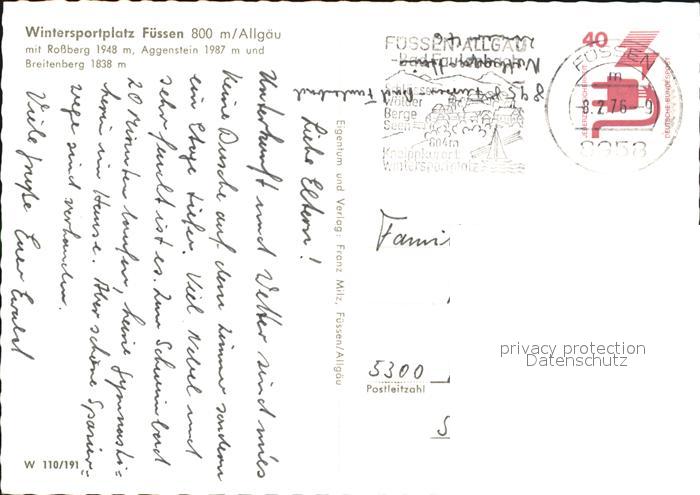 Wintersportplatz Füssen 800 m/Allgäu
mit Roßberg 1948 m, Aggenstein 1987 m und
Breitenberg 1838 m
Liebe Eltern!
Unterkunft und Wetter sind mies
Keine Dusche auf dem Zimmer sondern
ein Etage tiefer. Viel Nebel und
sehr feucht ist es. Zum Schwimmbad
20 Minuten laufen, keine Gymnasti-
hier im Hause. Aber schöne Spazier-
wege sind vorhanden.
Viele Grüße Euer Ewald
W 110/191
Eigentum und Verlag: Franz Milz, Füssen/Allgäu
FÜSSEN ALLGÄU
Wälder
Berge
Seen
804m
Kneippkurort
Wintersportplatz
FÜSSEN
m
-8.2.76-9
8958
40
DEUTSCHE BUNDESPOST
Fami
5300
Postleitzahl
privacy protection
Datenschutz